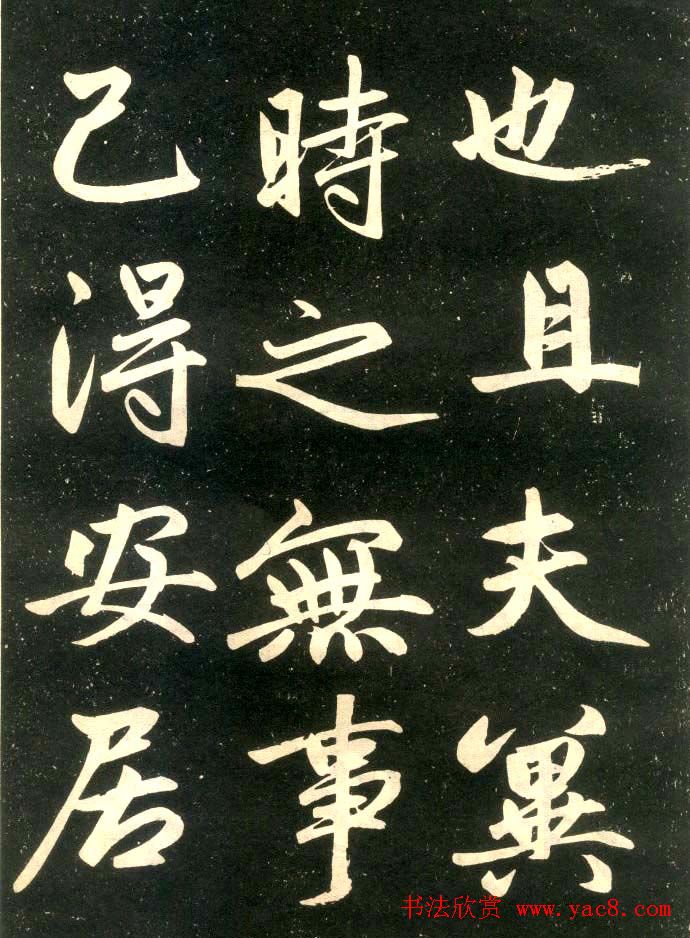 也且夫冀
時之無事
己得安居
书法欣赏 www.yac8.com